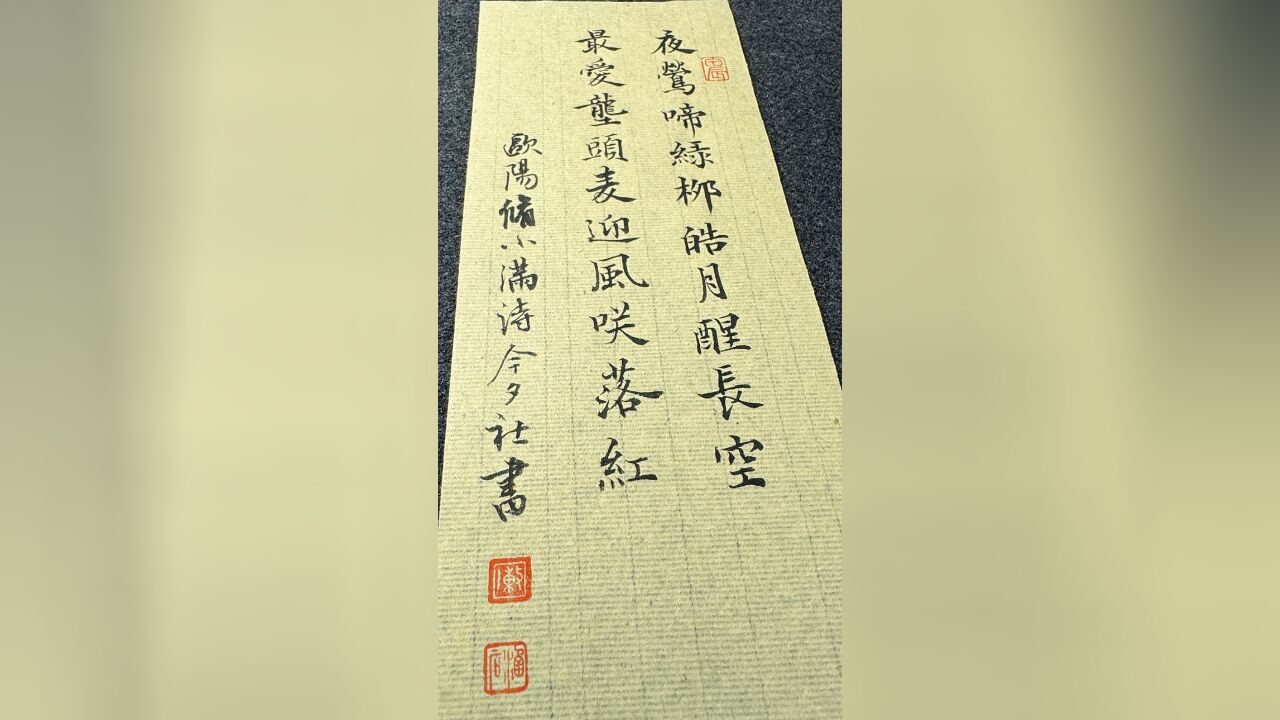 夜鶯啼緑栁皓月醒長空
最愛壟頭麦迎風咲落紅
歐陽脩小满诗今夕社書